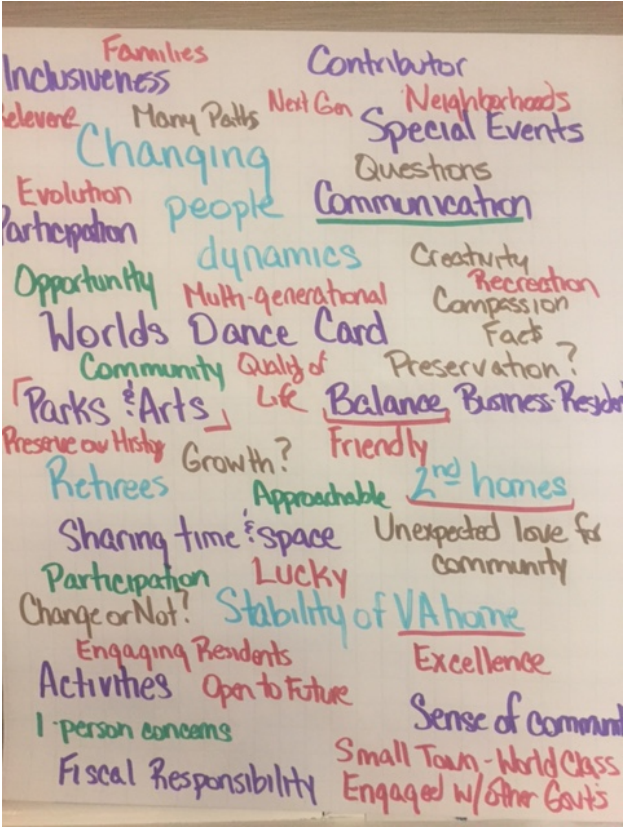 Families
Inclusiveness
Contributor
Many Paths
Next Gen
Neighborhoods
Special Events
Changing
people
dynamics
Questions
Communication
Evolution
Participation
Opportunity
Multi-generational
Creativity
Recreation
Compassion
Facts
Worlds Dance Card
Preservation?
Community
Quality of
Life
Parks & Arts
Balance
Business-Resident
Preserve our History
Growth?
Friendly
Retirees
Approachable
2nd homes
Sharing time & space
Unexpected love for
community
Participation
Lucky
Change or Not?
Stability of VA home
Engaging Residents
Excellence
Activities
Open to Future
Sense of communi
1-person concerns
Small Town - World Class
Fiscal Responsibility
Engaged w/ other Gov'ts